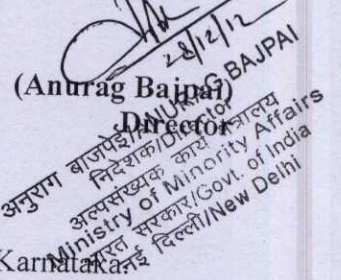 28/12/12
(Anurag Bajpai)
Director
अनुराग बाजपेई/ANURAG BAJPAI
निदेशक/Director
अल्पसंख्यक कार्य मंत्रालय
Ministry of Minority Affairs
भारत सरकार/Govt. of India
नई दिल्ली/New Delhi
Karnataka.